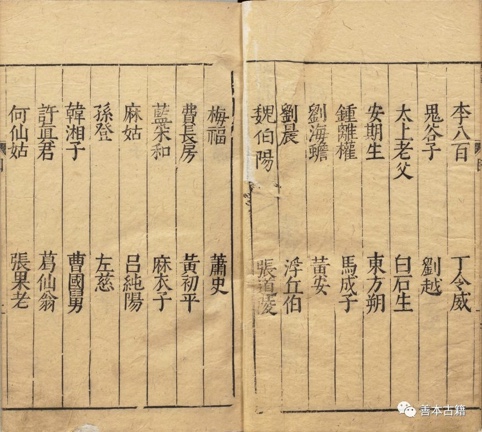 李八百 丁令威
鬼谷子 劉越
太上老父 白石生
安期生 東方朔
鍾離權 馬成子
劉海蟾 黃安
劉晨 浮丘伯
魏伯陽 張道陵
梅福 蕭史
費長房 黃初平
藍采和 麻衣子
麻姑 呂純陽
孫登 左慈
韓湘子 曹國舅
許眞君 葛仙翁
何仙姑 張果老
善本古籍